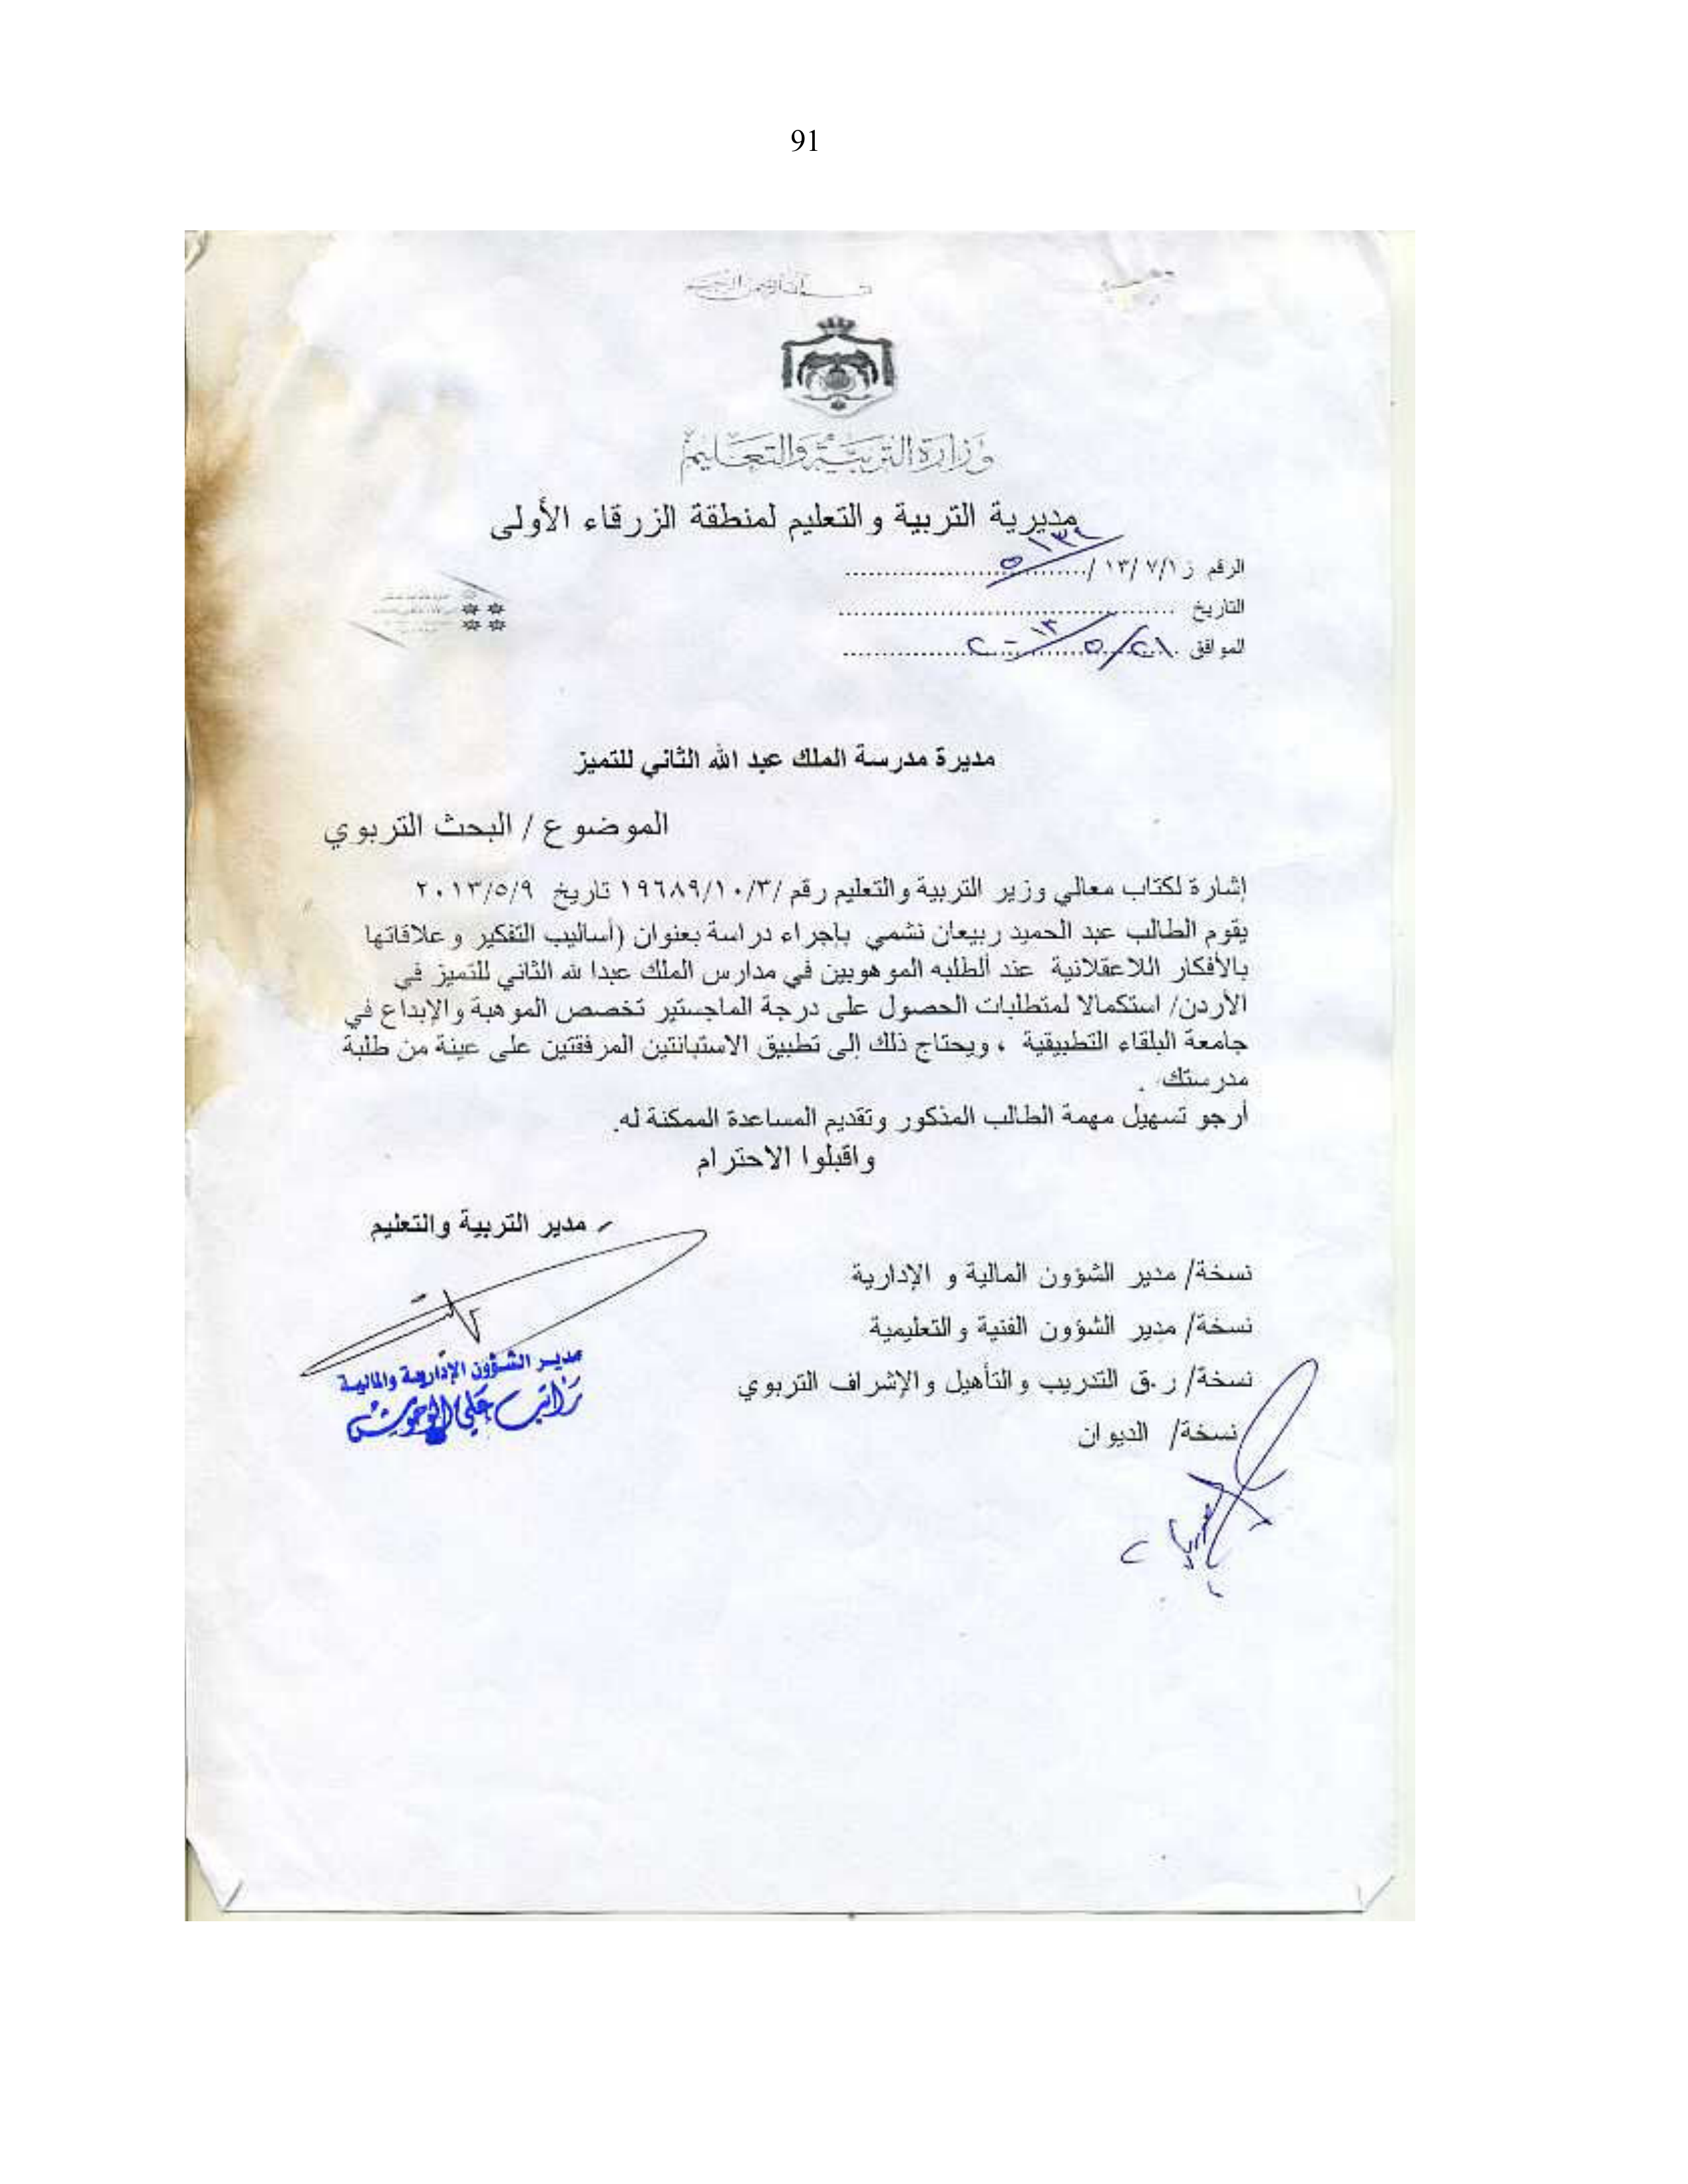 91
بسم الله الرحمن الرحيم
وزارة التربية والتعليم
مديرية التربية والتعليم لمنطقة الزرقاء الأولى
الرقم ز/٧/١ /١٣ /
التاريخ
الموافق ٢١/٥/٢٠١٣
مديرة مدرسة الملك عبد الله الثاني للتميز
الموضوع / البحث التربوي
إشارة لكتاب معالي وزير التربية والتعليم رقم /١٩٦٨٩/١٠/٣ تاريخ ٢٠١٣/٥/٩
يقوم الطالب عبد الحميد ربيعان نشمي بإجراء دراسة بعنوان (أساليب التفكير وعلاقاتها
بالأفكار اللاعقلانية عند الطلبه الموهوبين في مدارس الملك عبدا لله الثاني للتميز في
الأردن/ استكمالا لمتطلبات الحصول على درجة الماجستير تخصص الموهبة والإبداع في
جامعة البلقاء التطبيقية ، ويحتاج ذلك إلى تطبيق الاستبانتين المرفقتين على عينة من طلبة
مدرستك .
أرجو تسهيل مهمة الطالب المذكور وتقديم المساعدة الممكنة له.
واقبلوا الاحترام
مدير التربية والتعليم
نسخة/ مدير الشؤون المالية و الإدارية
نسخة/ مدير الشؤون الفنية والتعليمية
نسخة/ ر.ق التدريب والتأهيل والإشراف التربوي
نسخة/ الديوان
مدير الشؤون الإدارية والمالية
راتب علي